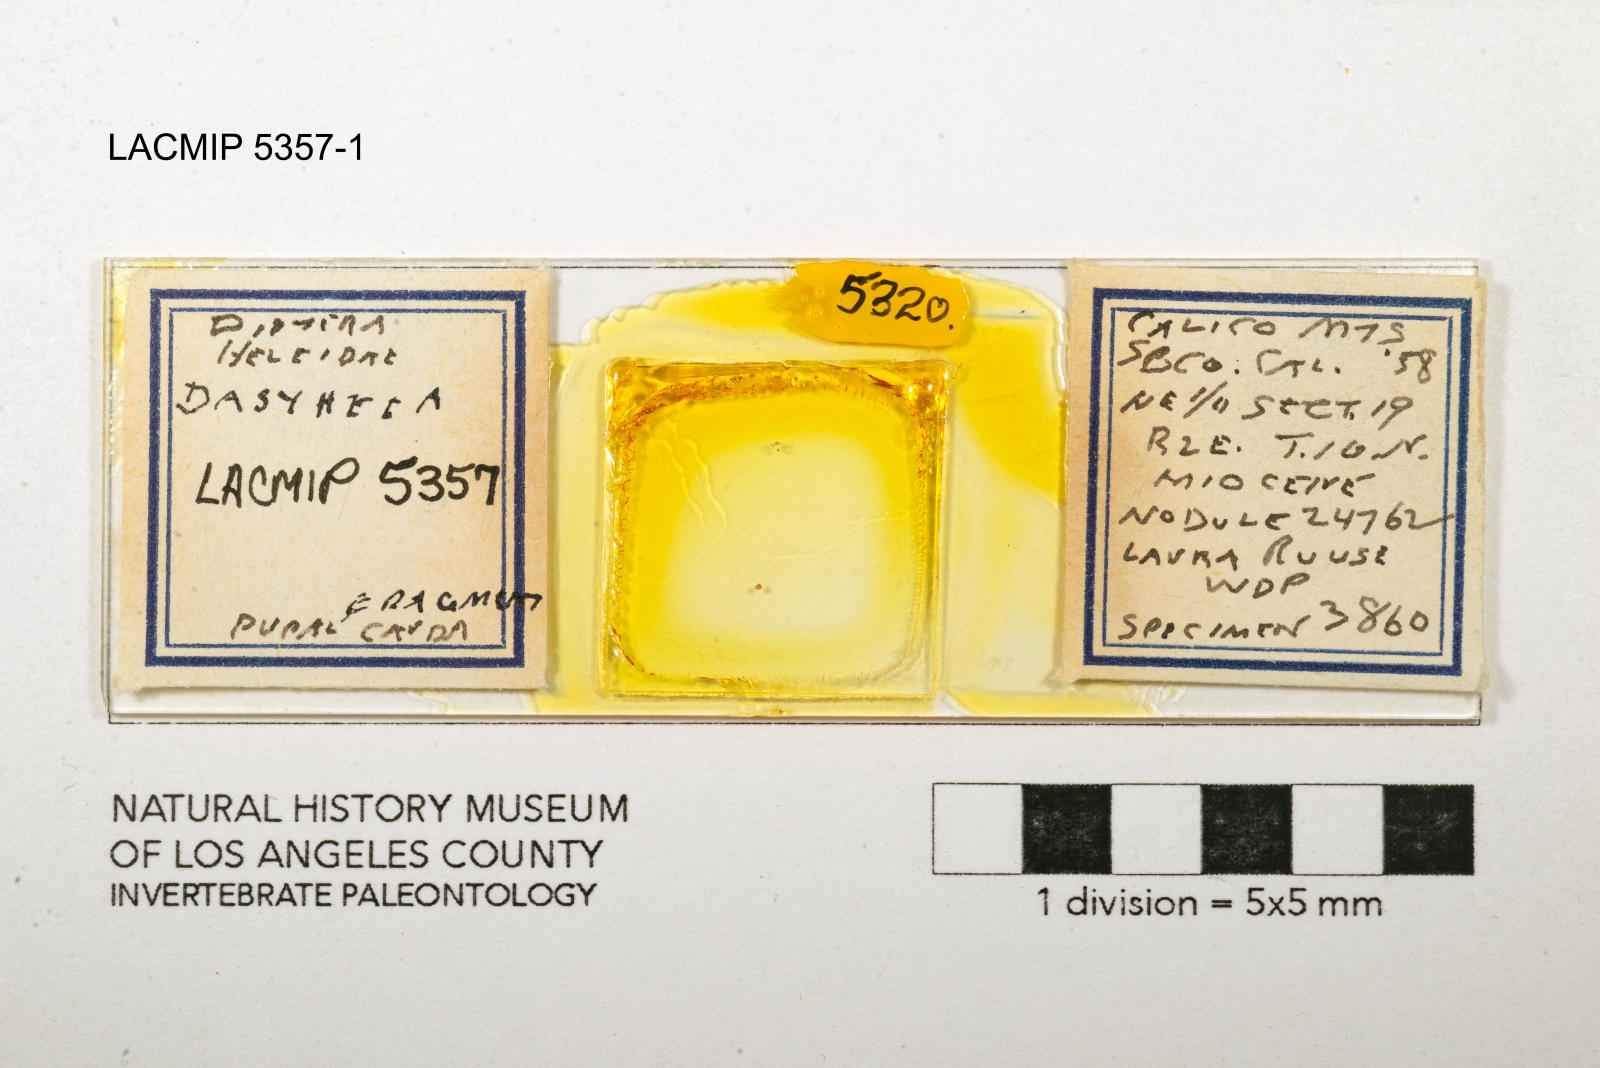 LACMIP 5357-1
5320.
DIPTERA
HELEIDAE
DASYHELA
LACMIP 5357
FRAGMENT
PUPAL CAUDA
CALICO MTS
SBCO. CAL. '58
NE 1/4 SECT. 19
R2E. T.10N.
MIOCENE
NODULE 24762
LAURA RUUSE
WDP
SPECIMEN 3860
NATURAL HISTORY MUSEUM
OF LOS ANGELES COUNTY
INVERTEBRATE PALEONTOLOGY
1 division = 5x5 mm